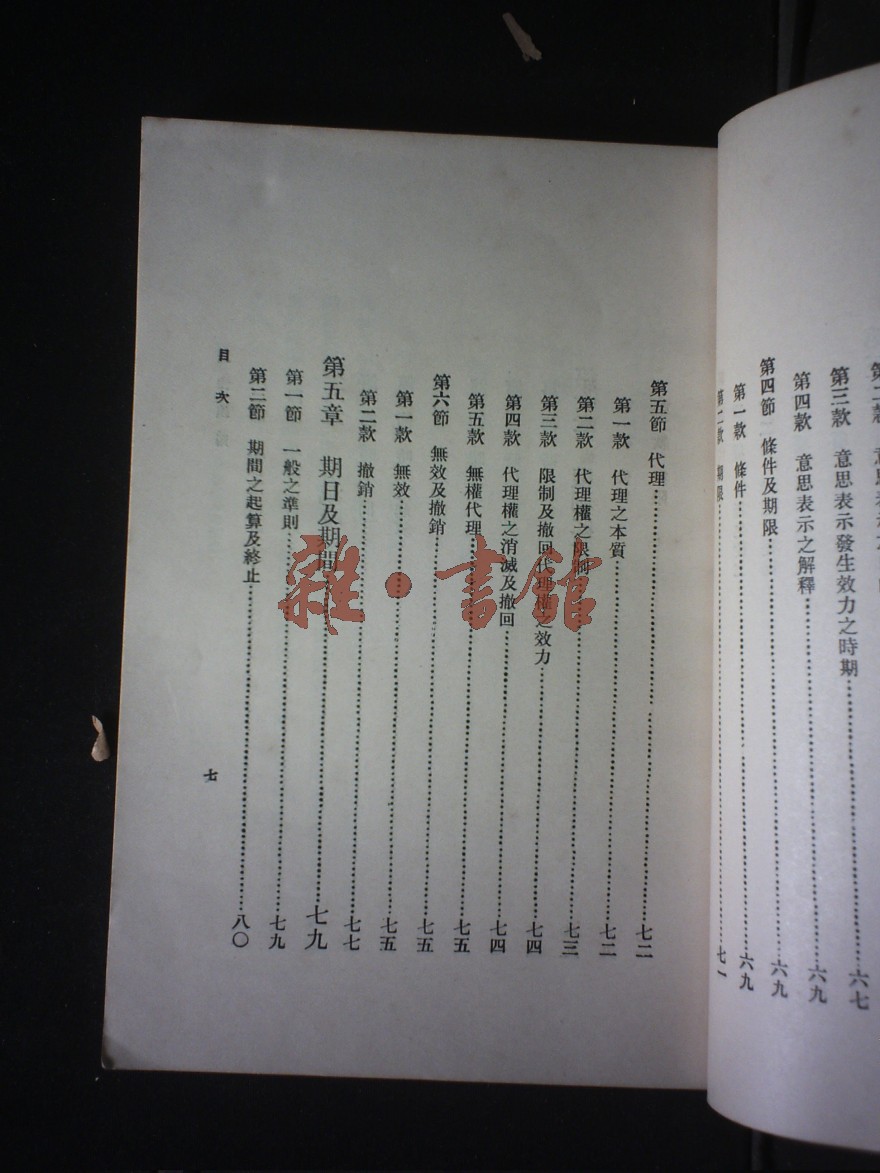 第三款 意思表示發生效力之時期……六七
第四款 意思表示之解釋……六九
第四節 條件及期限……六九
第一款 條件……六九
第二款 期限……七一
第五節 代理……七二
第一款 代理之本質……七二
第二款 代理權之限制……七三
第三款 限制及撤回代理權之效力……七四
第四款 代理權之消滅及撤回……七四
第五款 無權代理……七五
第六節 無效及撤銷……七五
第一款 無效……七五
第二款 撤銷……七七
第五章 期日及期間……七九
第一節 一般之準則……七九
第二節 期間之起算及終止……八〇
目次
七
雜·書館